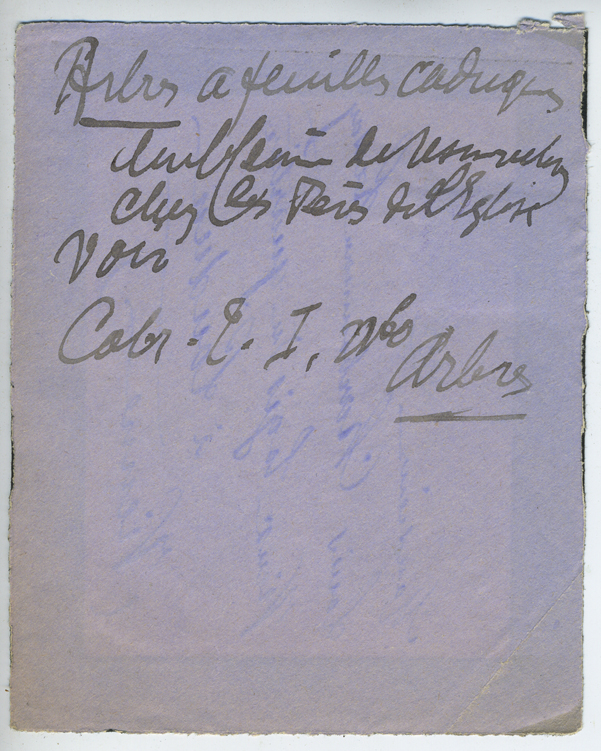 Arbres a feuilles caduques
emblème de résurrection
chez les Pères de l'Eglise
Voir
Cabr. E. I, vbo
Arbres